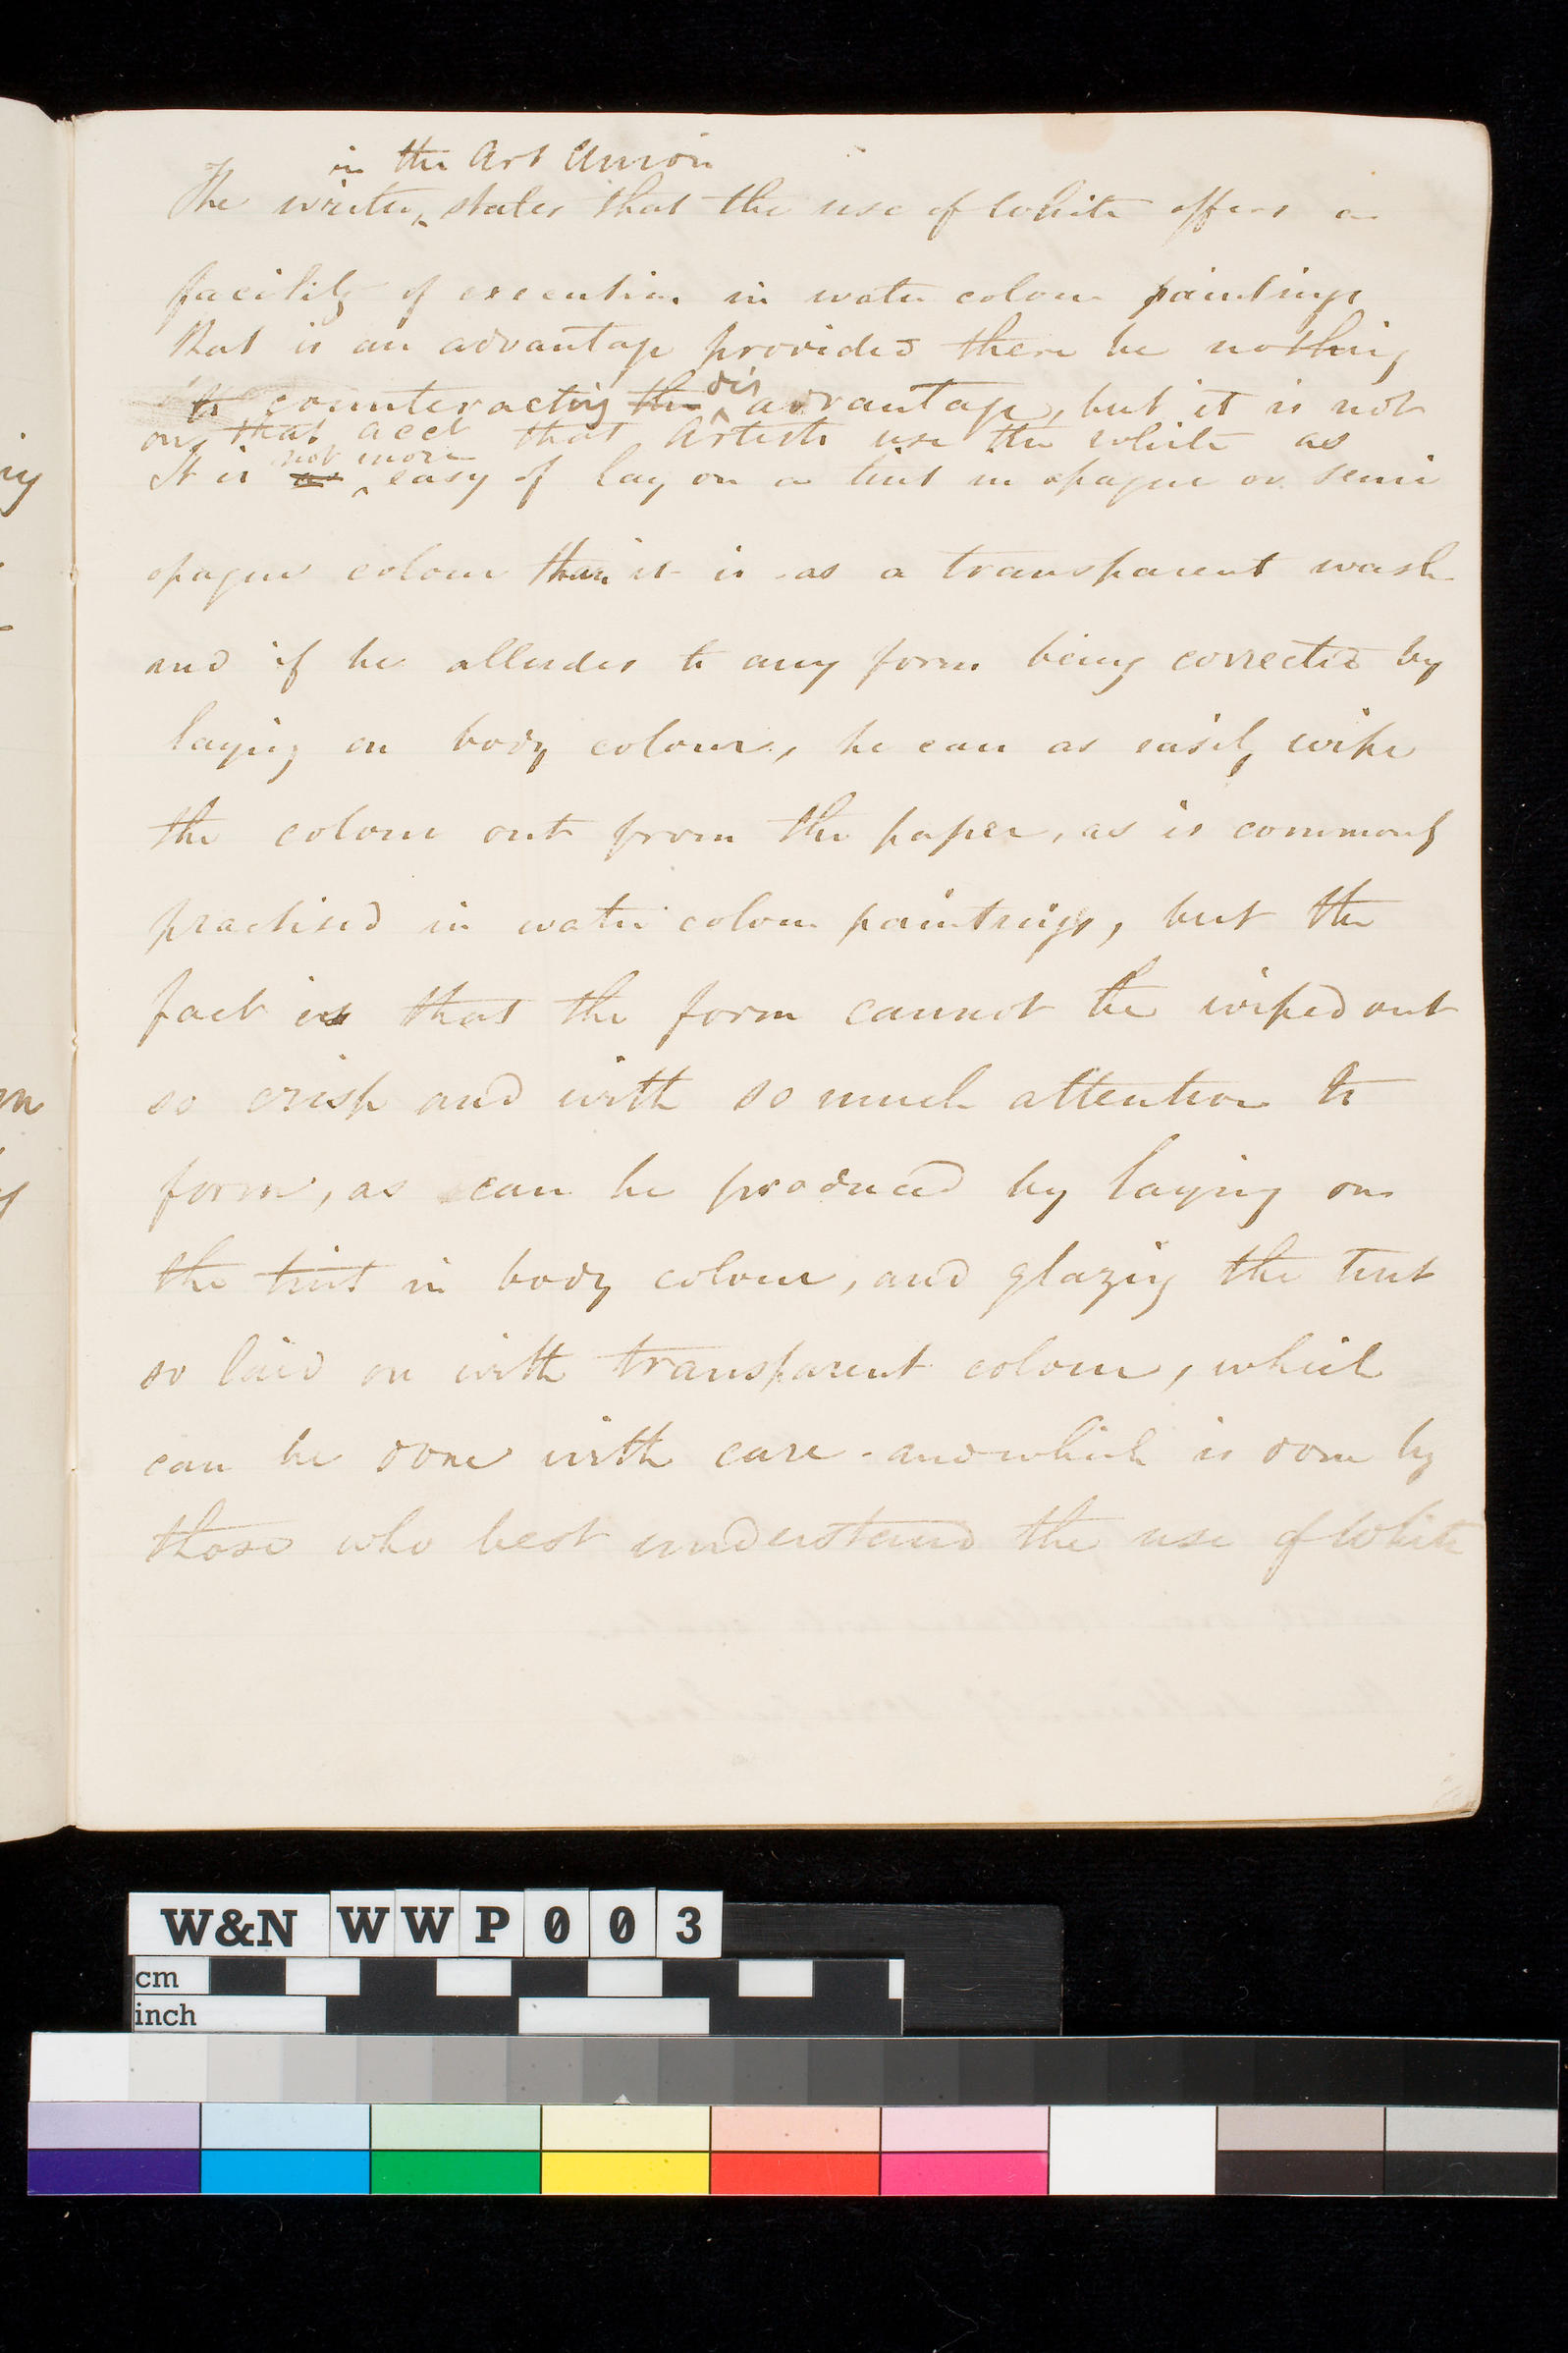 in the Art Union
The writer ‸ states that the use of White offers a
facility of execution in water colour paintings
that is an advantage provided there be nothing
dis
to counteracting the ‸ advantage, but it is not
on that acct that Artists use the white as
not more
It is as ‸ easy of lay on a tint in opaque or semi
opaque colour than it is as a transparent wash
and if he alludes to any form being corrected by
laying on body colour, he can as easily wipe
the colour out from the paper, as is commonly
practised in water colour paintings, but the
fact is that the form cannot be wiped out
so crisp and with so much attention to
form, as can be produced by laying on
the tint in body colour, and glazing the tint
so laid on with transparent colour, which
can be done with care - and which is done by
those who best understand the use of White
ny
m
W&N WWP003
cm
inch